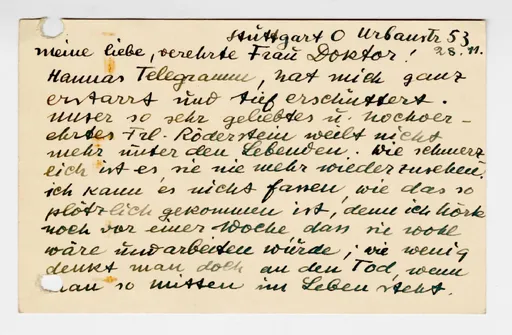 Stuttgart O Urbanstr 53
28. 11.
meine liebe, verehrte Frau Doktor!
Hannas Telegramm, hat mich ganz
erstarrt und tief erschüttert.
Unser so sehr geliebtes u. hochver-
ehrtes Frl. Röderstein weilt nicht
mehr unter den Lebenden. Wie schmerz
lich ist es, sie nie mehr wiederzusehen.
ich kann es nicht fassen, wie das so
plötzlich gekommen ist, denn ich hörte
noch vor einer Woche dass sie wohl
wäre und arbeiten würde; wie wenig
denkt man doch an den Tod, wenn
man so mitten im Leben steht.